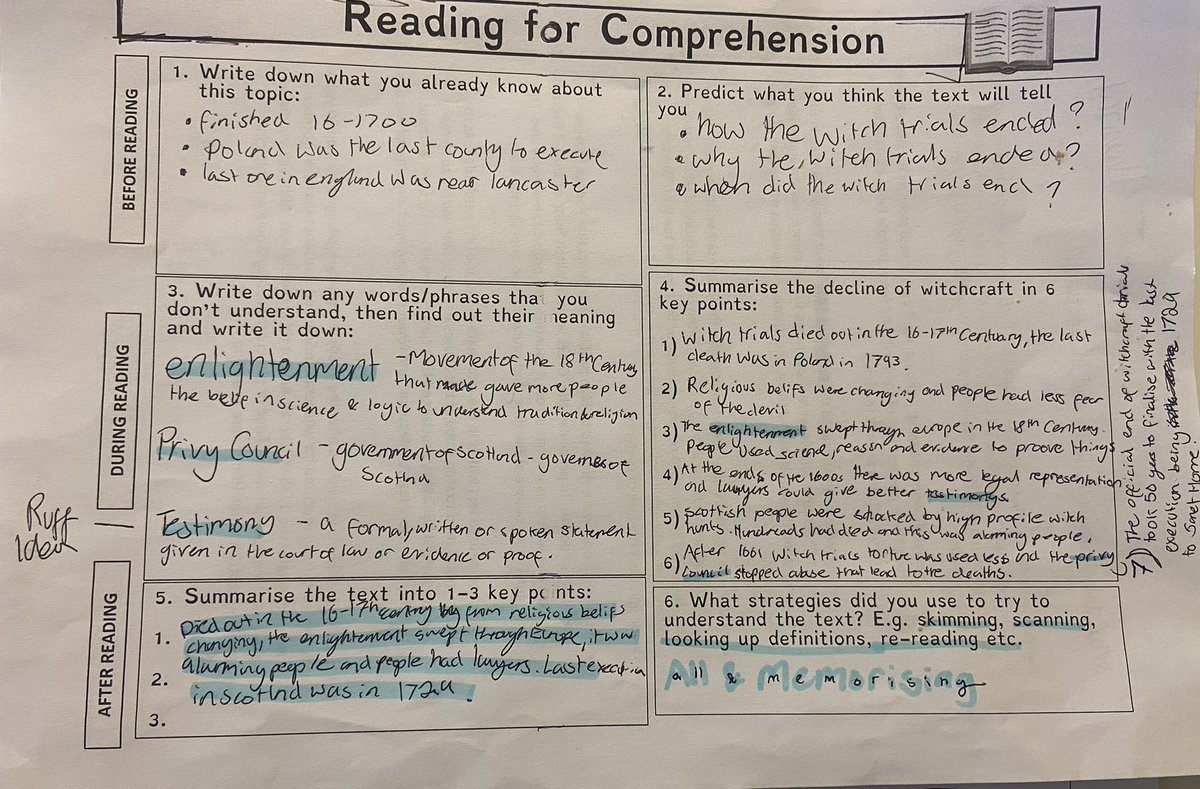 Reading for Comprehension
BEFORE READING
1. Write down what you already know about
this topic:
• finished 16-1700
• Poland was the last county to execute
• last one in england was near lancaster
2. Predict what you think the text will tell
you
• how the witch trials ended?
• why the witch trials ended?
• when did the witch trials end?
DURING READING
3. Write down any words/phrases tha you
don't understand, then find out their meaning
and write it down:
enlightenment - Movement of the 18th Century
that made gave more people
the belie in science & logic to understand tradition & religion
Privy Council - government of Scotland - governess of
Scotland
Testimony - a formal, written or spoken statement
given in the court of law or evidence or proof.
4. Summarise the decline of witchcraft in 6
key points:
1) Witch trials died out in the 16-17th Centuary, the last
death was in Poland in 1793.
2) Religious belifs were changing and people had less fear
of the devil
3) The enlightenment swept throughn europe in the 18th Century.
People used science, reason and evidence to proove things
4) At the ends of the 1600s there was more legal representation
and lawyers could give better testimonys.
5) Scottish people were shocked by high profile witch
hunts. Hundreads had died and this was alarming people.
6) After 1661 witch trials torture was used less and the privy
council stopped abuse that lead to the deaths.
7) The official end of witchcraft trials
took 50 years to finalise with the last
execution being 1729
to Janet Horne
Ruff
Idea
AFTER READING
5. Summarise the text into 1-3 key points:
1.
2.
3.
Died out in the 16-17th century from religious belifs
changing, the enlightenment swept through Europe, it was
alarming people and people had lawyers. Last execution
in scotlnd was in 1729.
6. What strategies did you use to try to
understand the text? E.g. skimming, scanning,
looking up definitions, re-reading etc.
All & Memorising